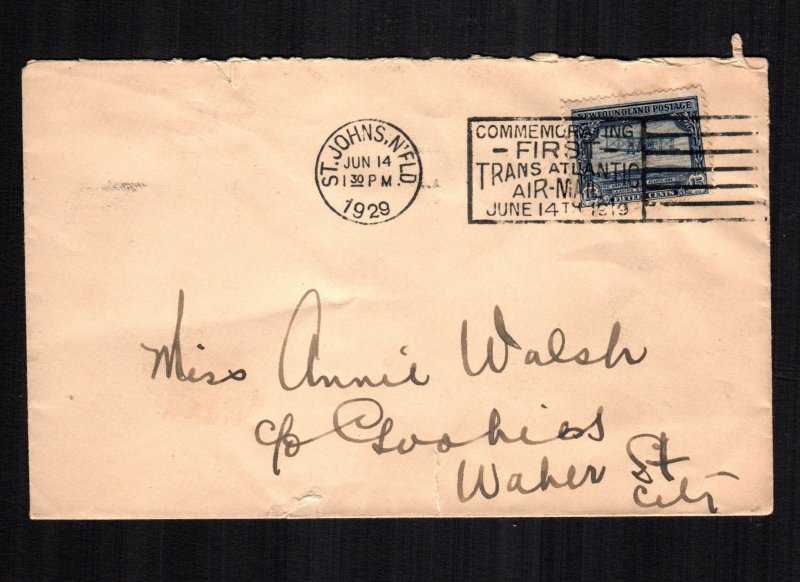 ST. JOHNS, N'FLD.
JUN 14
1 30 PM
1929
COMMEMORATING
- FIRST -
TRANS ATLANTIC
AIR-MAIL
JUNE 14TH 1919
NEWFOUNDLAND POSTAGE
15
FIFTEEN CENTS
Miss Annie Walsh
c/o
St
City